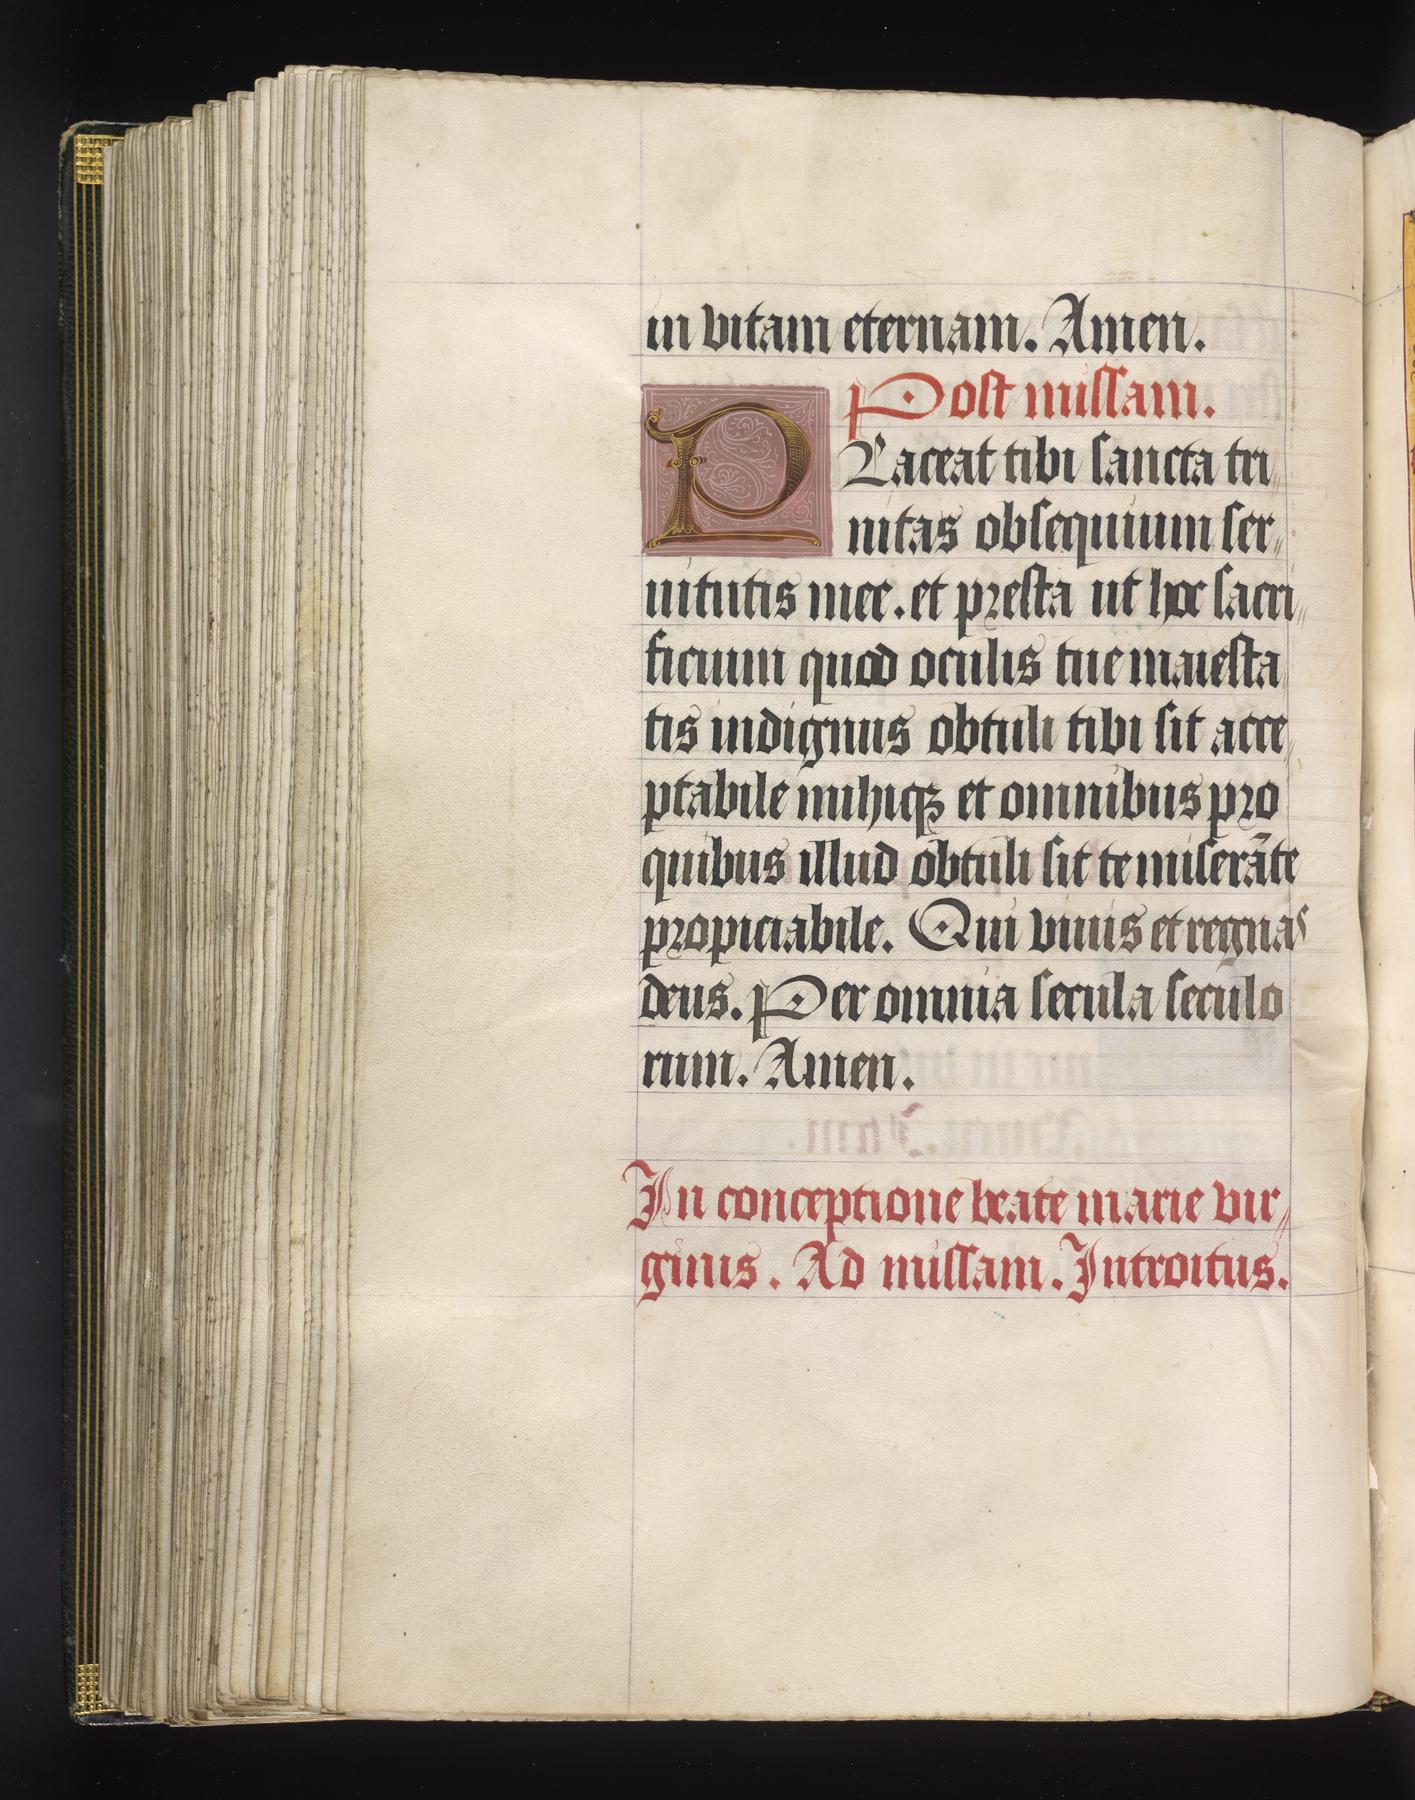 in vitam eternam. Amen.
Post missam.
PLaceat tibi sancta tri
nitas obsequium ser
uitutis mee. et presta ut hoc sacri
ficium quod oculis tue maiesta
tis indignus obtuli tibi sit acce
ptabile mihiqꝫ et omnibus pro
quibus illud obtuli sit te miserāte
propiciabile. Qui viuis et regnas
deus. Per omnia secula seculo
rum. Amen.
In conceptione beate marie vir
ginis. Ad missam. Introitus.